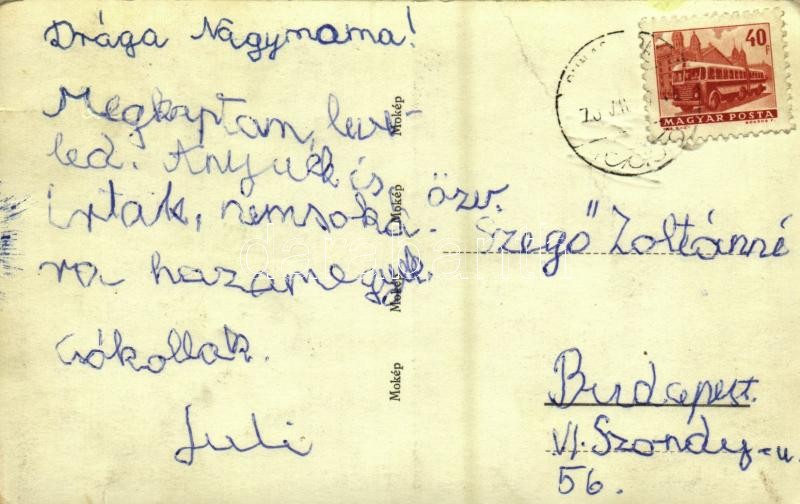 Drága Nagymama!
Megkaptam leve-
led. Anyuék is
írtak, nemsoká-
ra hazamegyek.
Csókollak.
Juli
Mokép
Mokép
Mokép
Mokép
40 F
MAGYAR POSTA
özv.
Szegő Zoltánné
Budapest.
VI. Szondy-u.
56.